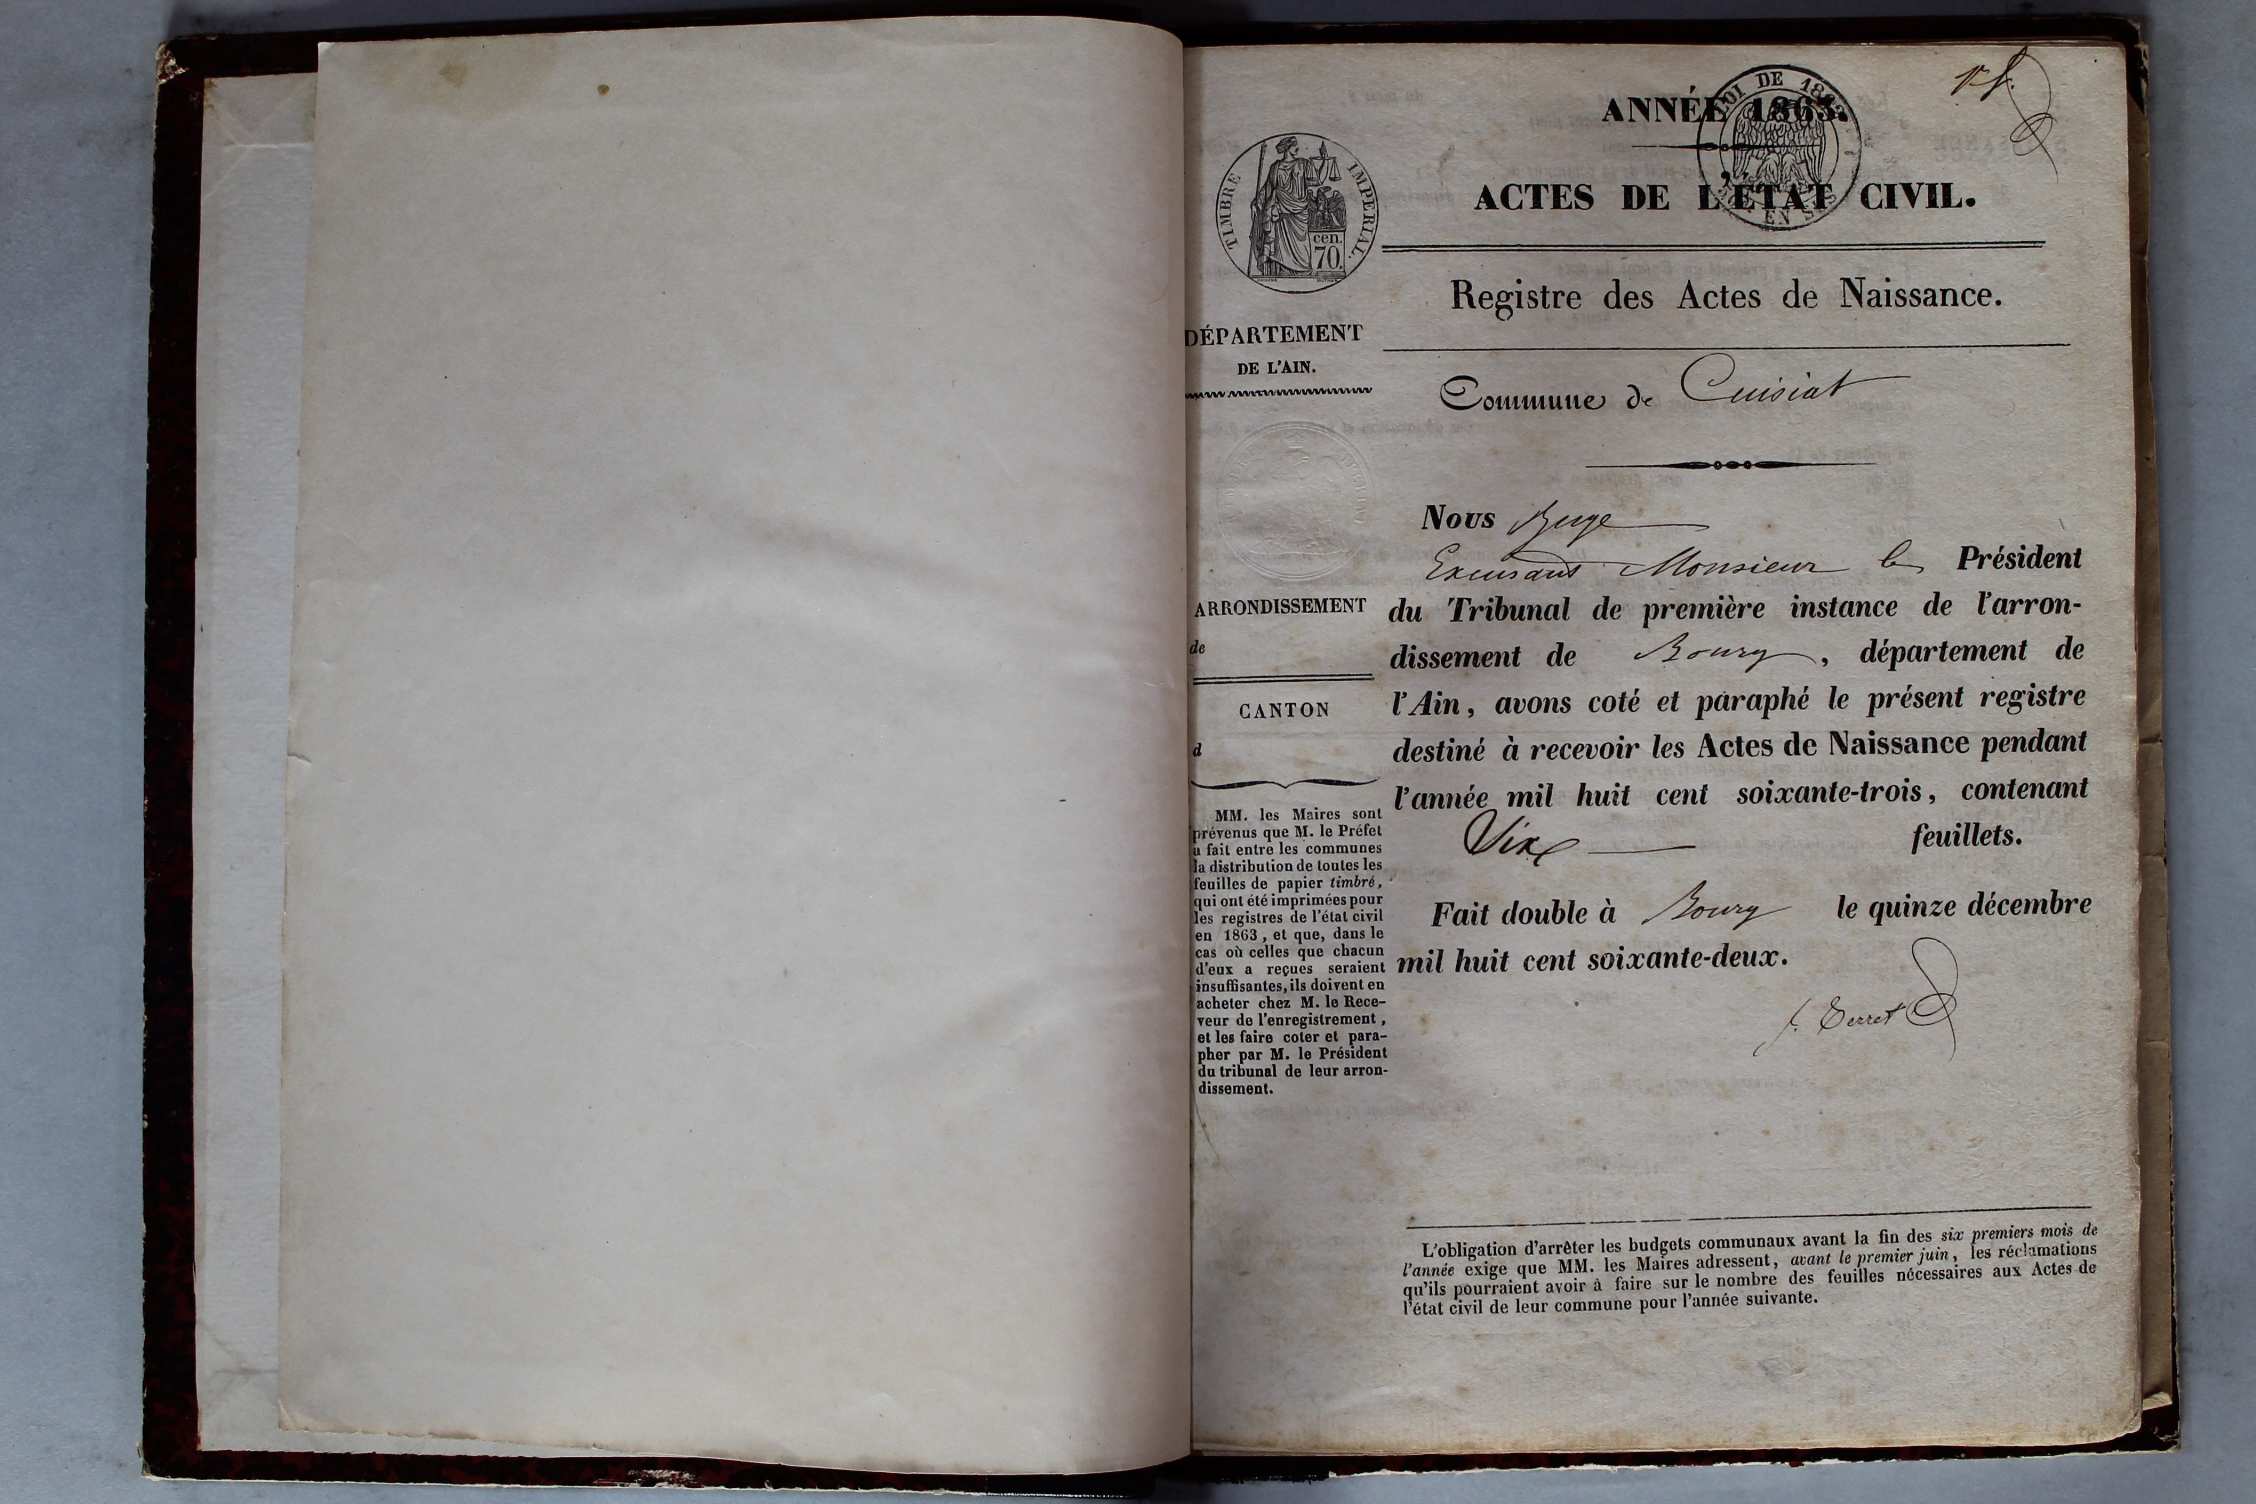 1er f.
ANNÉE 1863.
LOI DE 1862
EN SUS
ACTES DE L'ÉTAT CIVIL.
TIMBRE IMPÉRIAL.
cen.
70.
Registre des Actes de Naissance.
DÉPARTEMENT
DE L'AIN.
Commune de Cuisiat
ARRONDISSEMENT
de
CANTON
d
MM. les Maires sont
prévenus que M. le Préfet
a fait entre les communes
la distribution de toutes les
feuilles de papier timbré,
qui ont été imprimées pour
les registres de l'état civil
en 1863, et que, dans le
cas où celles que chacun
d'eux a reçues seraient
insuffisantes, ils doivent en
acheter chez M. le Rece-
veur de l'enregistrement,
et les faire coter et para-
pher par M. le Président
du tribunal de leur arron-
dissement.
Nous Juge
Monsieur le Président
du Tribunal de première instance de l'arron-
dissement de Bourg, département de
l'Ain, avons coté et paraphé le présent registre
destiné à recevoir les Actes de Naissance pendant
l'année mil huit cent soixante-trois, contenant
Six feuillets.
Fait double à Bourg le quinze décembre
mil huit cent soixante-deux.
f. Perret
L'obligation d'arrêter les budgets communaux avant la fin des six premiers mois de
l'année exige que MM. les Maires adressent, avant le premier juin, les réclamations
qu'ils pourraient avoir à faire sur le nombre des feuilles nécessaires aux Actes de
l'état civil de leur commune pour l'année suivante.